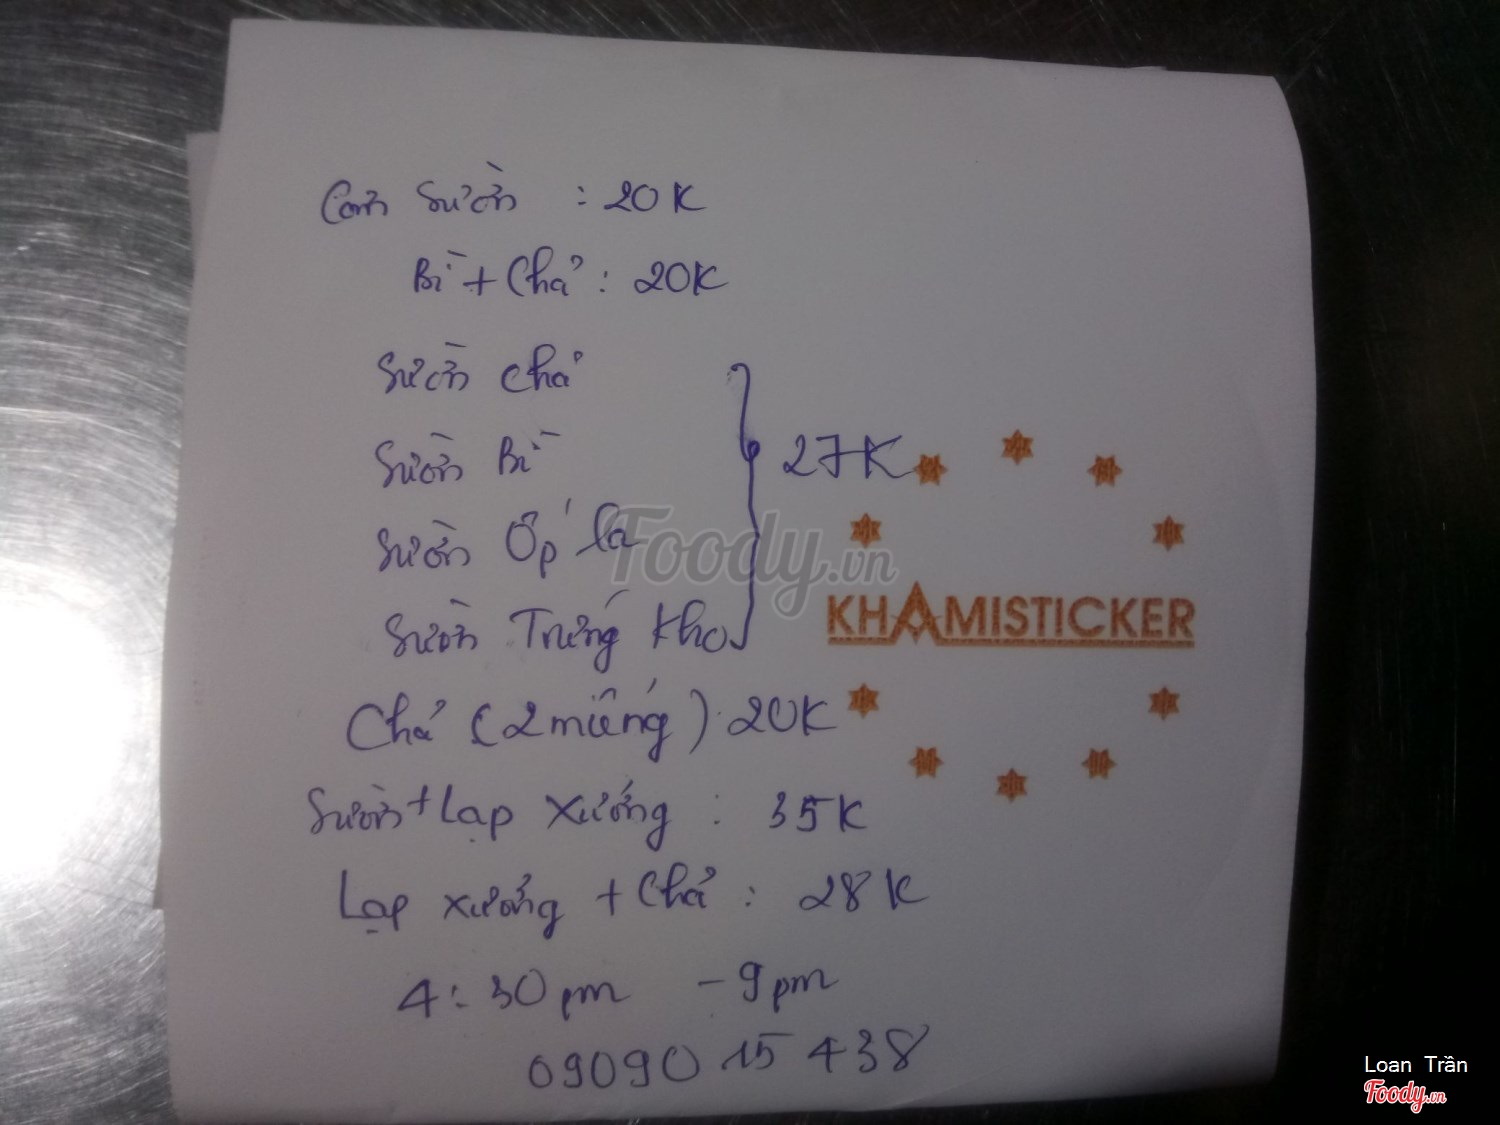 Cơm sườn : 20K
Bì + Chả : 20K
Sườn chả
Sườn Bì
27K
Sườn Ốp la
Sườn Trứng kho
Foody.vn
KHAMISTICKER
Chả (2 miếng) 20K
Sườn + Lạp xưởng : 35K
Lạp xưởng + Chả : 28K
4:30pm - 9pm
09090 15 438
Loan Trần
Foody.vn